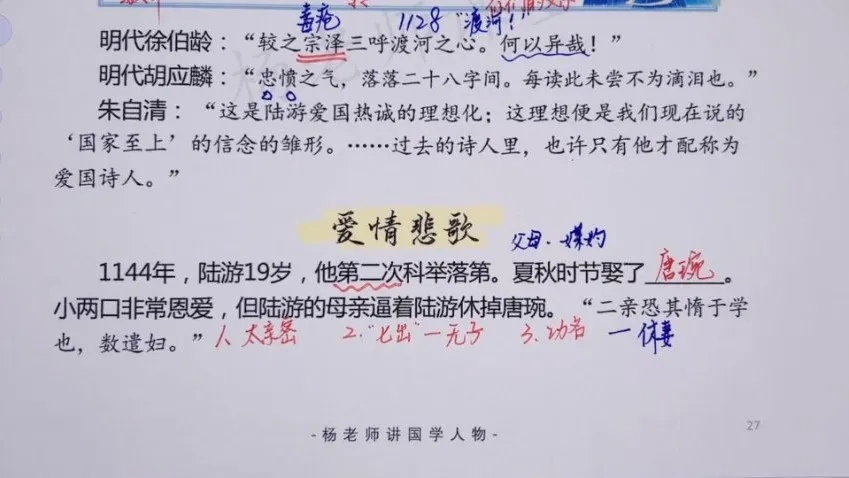 毒疮 1128 "渡河！"
明代徐伯龄：“较之宗泽三呼渡河之心。何以异哉！”
明代胡应麟：“忠愤之气，落落二十八字间。每读此未尝不为滴泪也。”
朱自清：“这是陆游爱国热诚的理想化；这理想便是我们现在说的
‘国家至上’的信念的雏形。……过去的诗人里，也许只有他才配称为
爱国诗人。”
爱情悲歌
父母·媒妁
1144年，陆游19岁，他第二次科举落第。夏秋时节娶了唐琬。
小两口非常恩爱，但陆游的母亲逼着陆游休掉唐琬。“二亲恐其惰于学
也，数遣妇。”1、太亲密 2、“七出”一无子 3、功名 — 休妻
-杨老师讲国学人物-
27